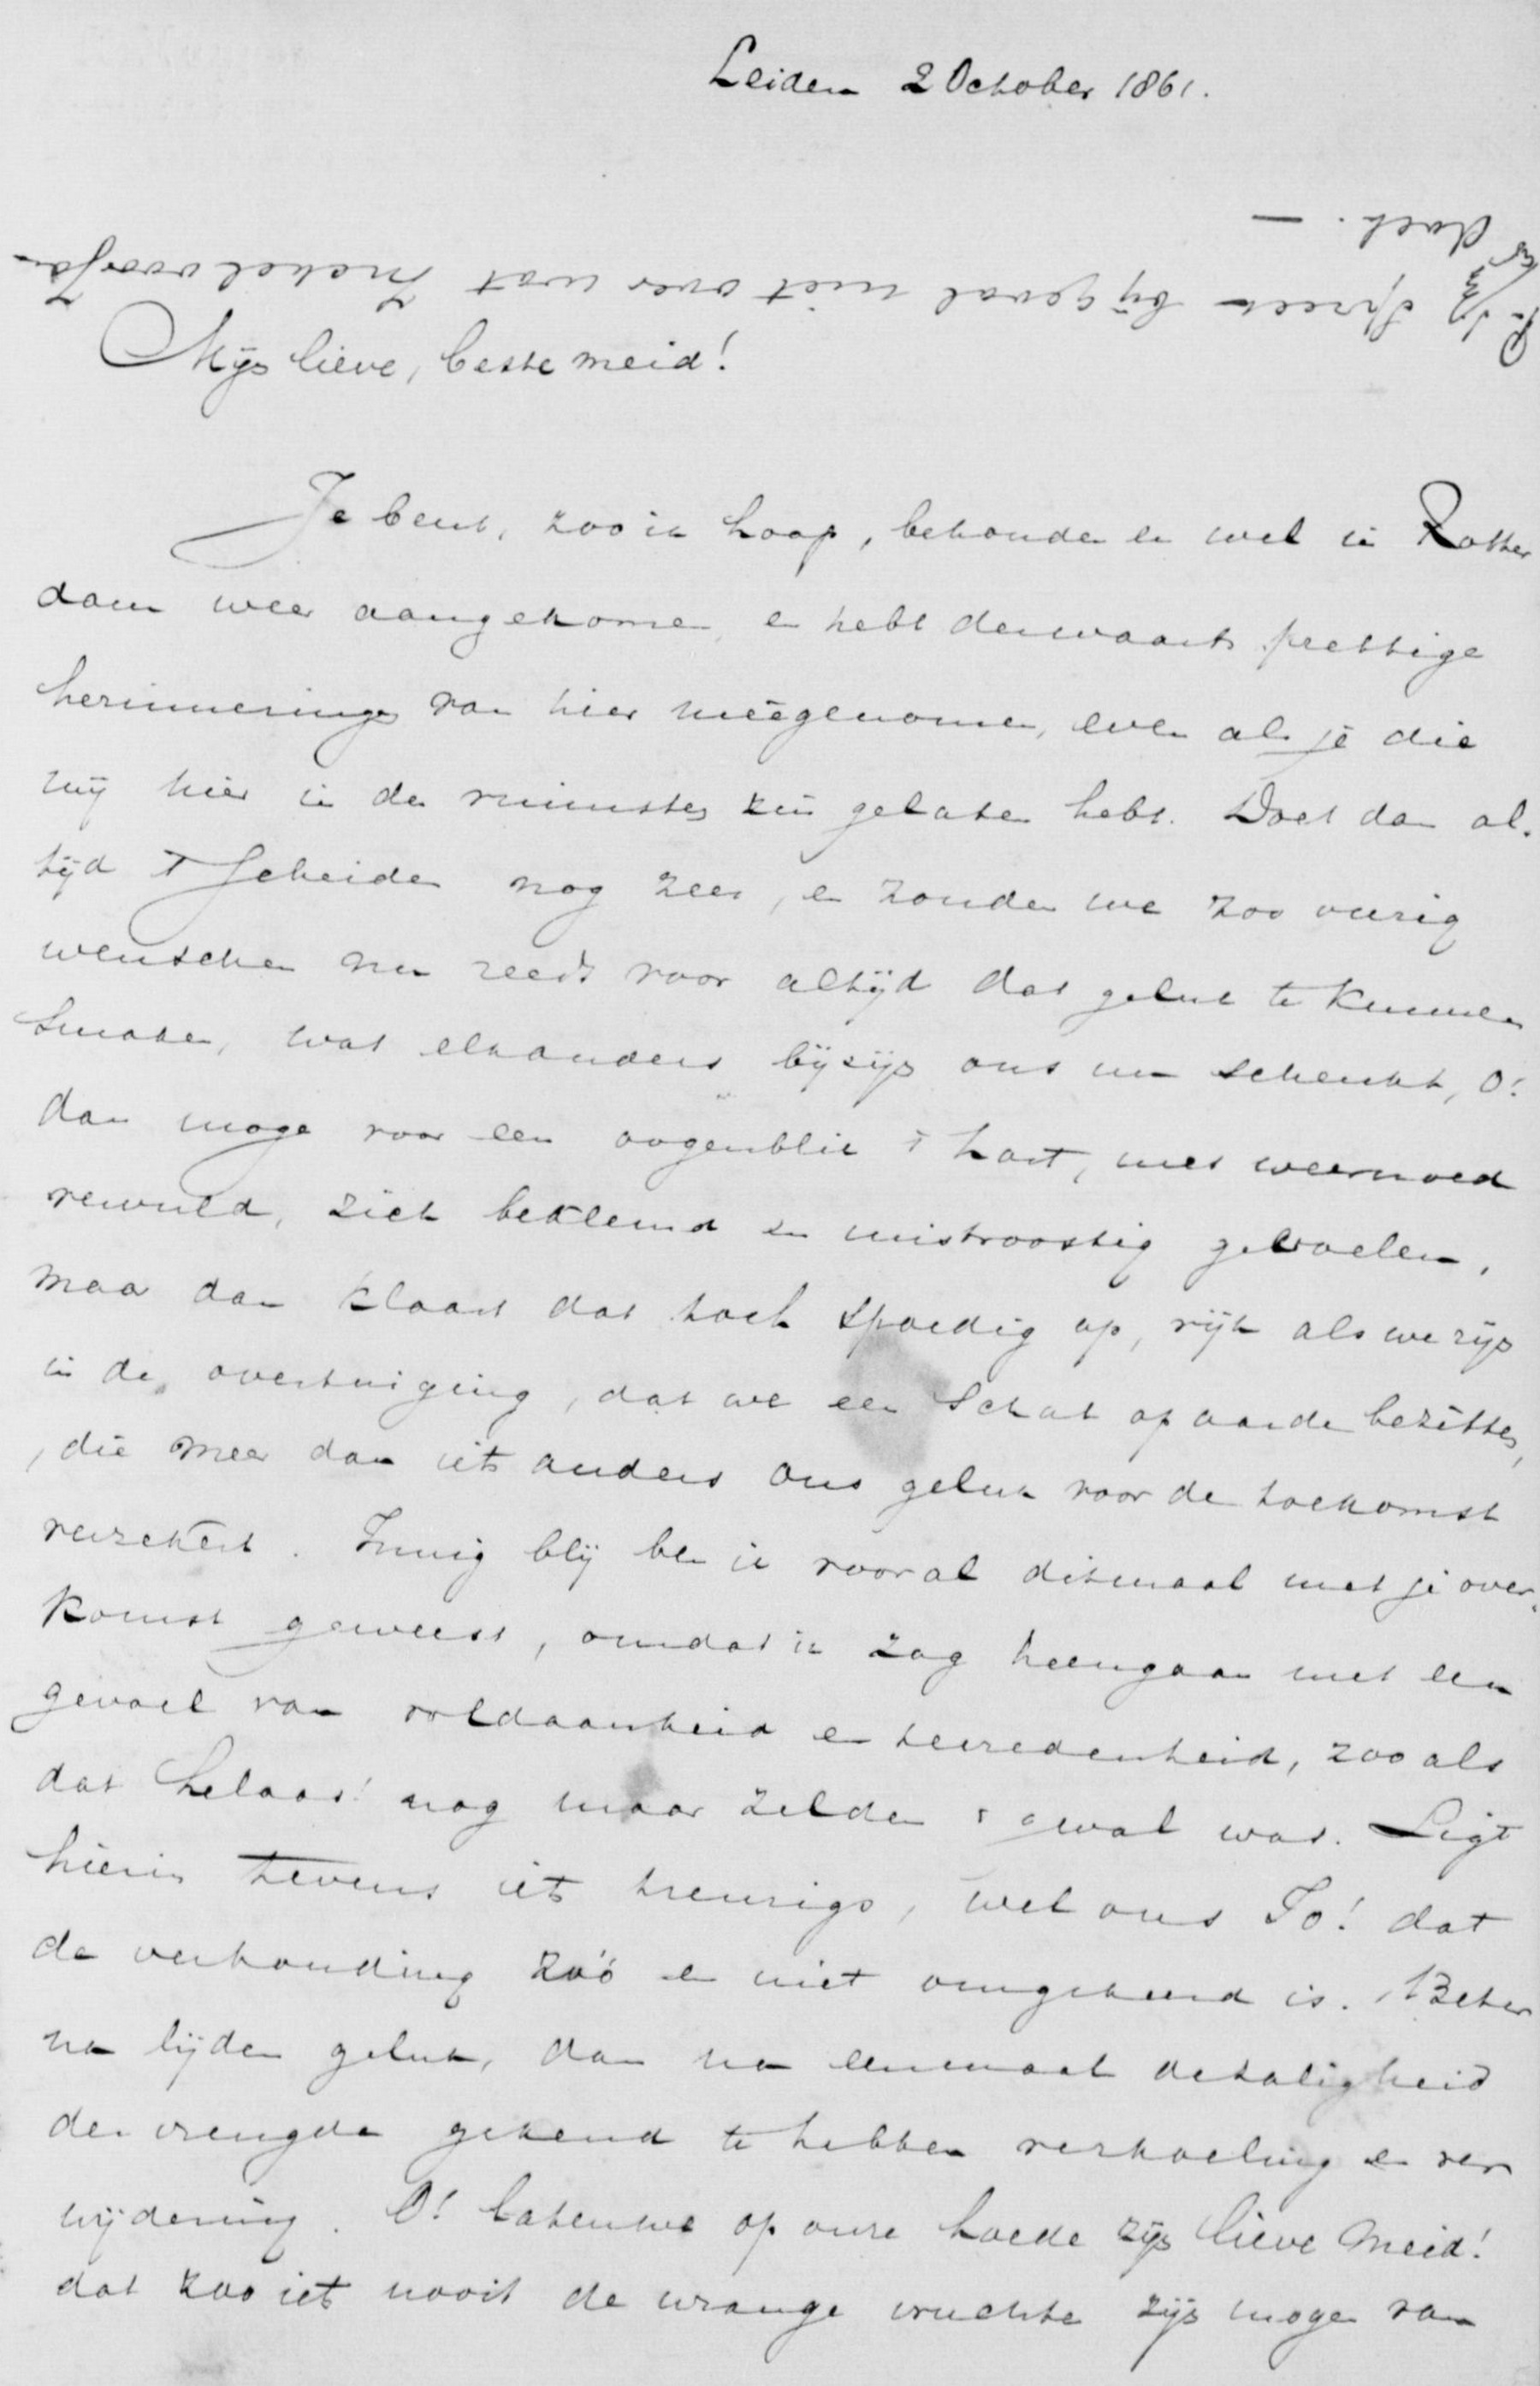 Leiden 2 October 1861.
P.S. Spreek bijgeval niet over wat Mekel voorjan
doch. —
Mijn lieve, beste meid!
Je bent, zoo ik hoop, behouden en wel in Rotter
dam weer aangekomen, en hebt derwaarts prettige
herinneringen van hier meêgenomen, even als je die
mij hier in den ruimsten zin gelaten hebt. Doet dan al-
tijd 't Scheiden nog zeer, en zouden we zoo vurig
wenschen nu reeds voor altijd dat geluk te kunnen
smaken, wat elkanders bijzijn ons nu schenkt, O!
dan moge voor een oogenblik 't hart, met weemoed
vervuld, zich beklemd en mistroostig gevoelen,
maar dan klaart dat toch spoedig op, rijk als we zijn
in de overtuiging, dat we een schat op aarde bezitten,
, die meer dan iets anders ons geluk voor de toekomst
verzekert. Innig blij ben ik vooral ditmaal met je over-
komst geweest, omdat ik zag heengaan met een
gevoel van voldaanheid en tevredenheid, zoo als
dat helaas! nog maar zelden 't geval was. Ligt
hierin tevens iets treurigs, wel ons To! dat
de verhouding zóó en niet omgekeerd is. Beter
na lijden geluk, dan na eenmaal de zaligheid
der vreugde gekend te hebben verkoeling en ver
wijdering. O! laten we op onze hoede zijn lieve meid!
dat zoo iets nooit de wrange vruchten zijn mogen van